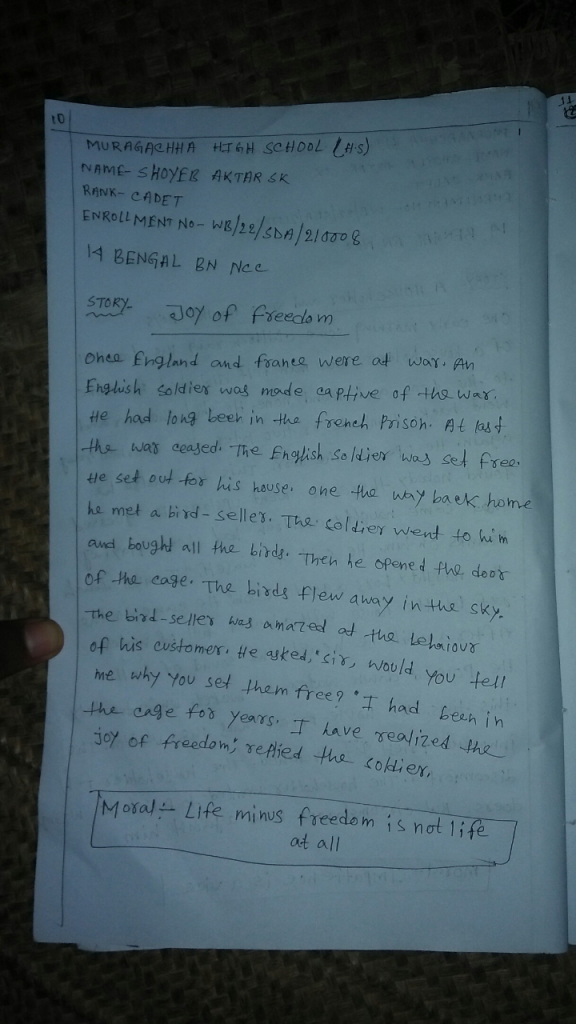 10
MURAGACHHA HIGH SCHOOL (H.S)
NAME- SHOYEB AKTAR SK
RANK- CADET
ENROLLMENT NO- WB/22/SDA/210008
14 BENGAL BN NCC
STORY- Joy of freedom
Once England and france were at war. An
English soldier was made captive of the war.
He had long been in the french Prison. At last
the war ceased. The English soldier was set free.
He set out for his house. one the way back home
he met a bird-seller. The soldier went to him
and bought all the birds. Then he opened the door
of the cage. The birds flew away in the sky.
The bird-seller was amazed at the behaiour
of his customer. He asked, "sir, would you tell
me why you set them free? "I had been in
the cage for years. I have realized the
joy of freedom", replied the soldier.
Moral:- Life minus freedom is not life
at all
11